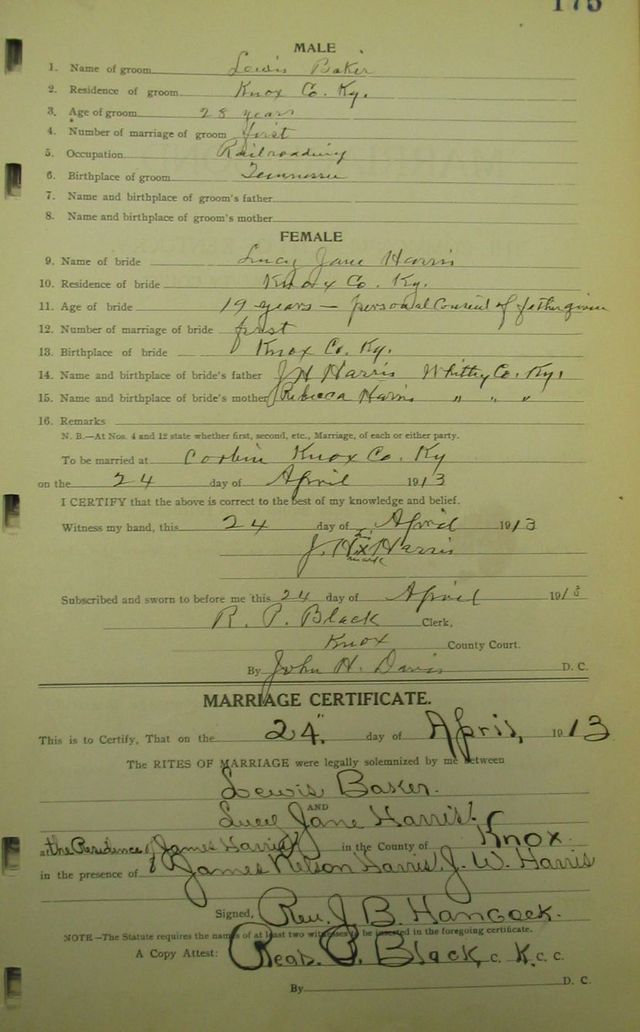 175
MALE
1. Name of groom Lewis Baker
2. Residence of groom Knox Co. Ky.
3. Age of groom 28 years
4. Number of marriage of groom first
5. Occupation Railroading
6. Birthplace of groom Tennessee
7. Name and birthplace of groom's father
8. Name and birthplace of groom's mother
FEMALE
9. Name of bride Lucy Jane Harris
10. Residence of bride Knox Co. Ky.
11. Age of bride 19 years — personal Consent of father given
12. Number of marriage of bride first
13. Birthplace of bride Knox Co. Ky.
14. Name and birthplace of bride's father J H Harris Whitley Co. Ky.
15. Name and birthplace of bride's mother Rebecca Harris " " "
16. Remarks
N. B.—At Nos. 4 and 12 state whether first, second, etc., Marriage, of each or either party.
To be married at Corbin Knox Co. Ky
on the 24 day of April 1913
I CERTIFY that the above is correct to the best of my knowledge and belief.
Witness my hand, this 24 day of April 1913
his
J. H x Harris
mark
Subscribed and sworn to before me this 24 day of April 1913
R. P. Black Clerk,
Knox County Court.
By John H. Davis D. C.
MARRIAGE CERTIFICATE.
This is to Certify, That on the 24" day of April, 1913
The RITES OF MARRIAGE were legally solemnized by me between
Lewis Baker.
AND
Jane Harris
at the Residence of James Harris in the County of Knox
in the presence of James Nelson Harris, J. W. Harris
Signed, Rev. J. B. Hancock.
NOTE—The Statute requires the names of at least two witnesses to be inserted in the foregoing certificate.
A Copy Attest: Read. P. Black, C. K. C. C.
By D. C.